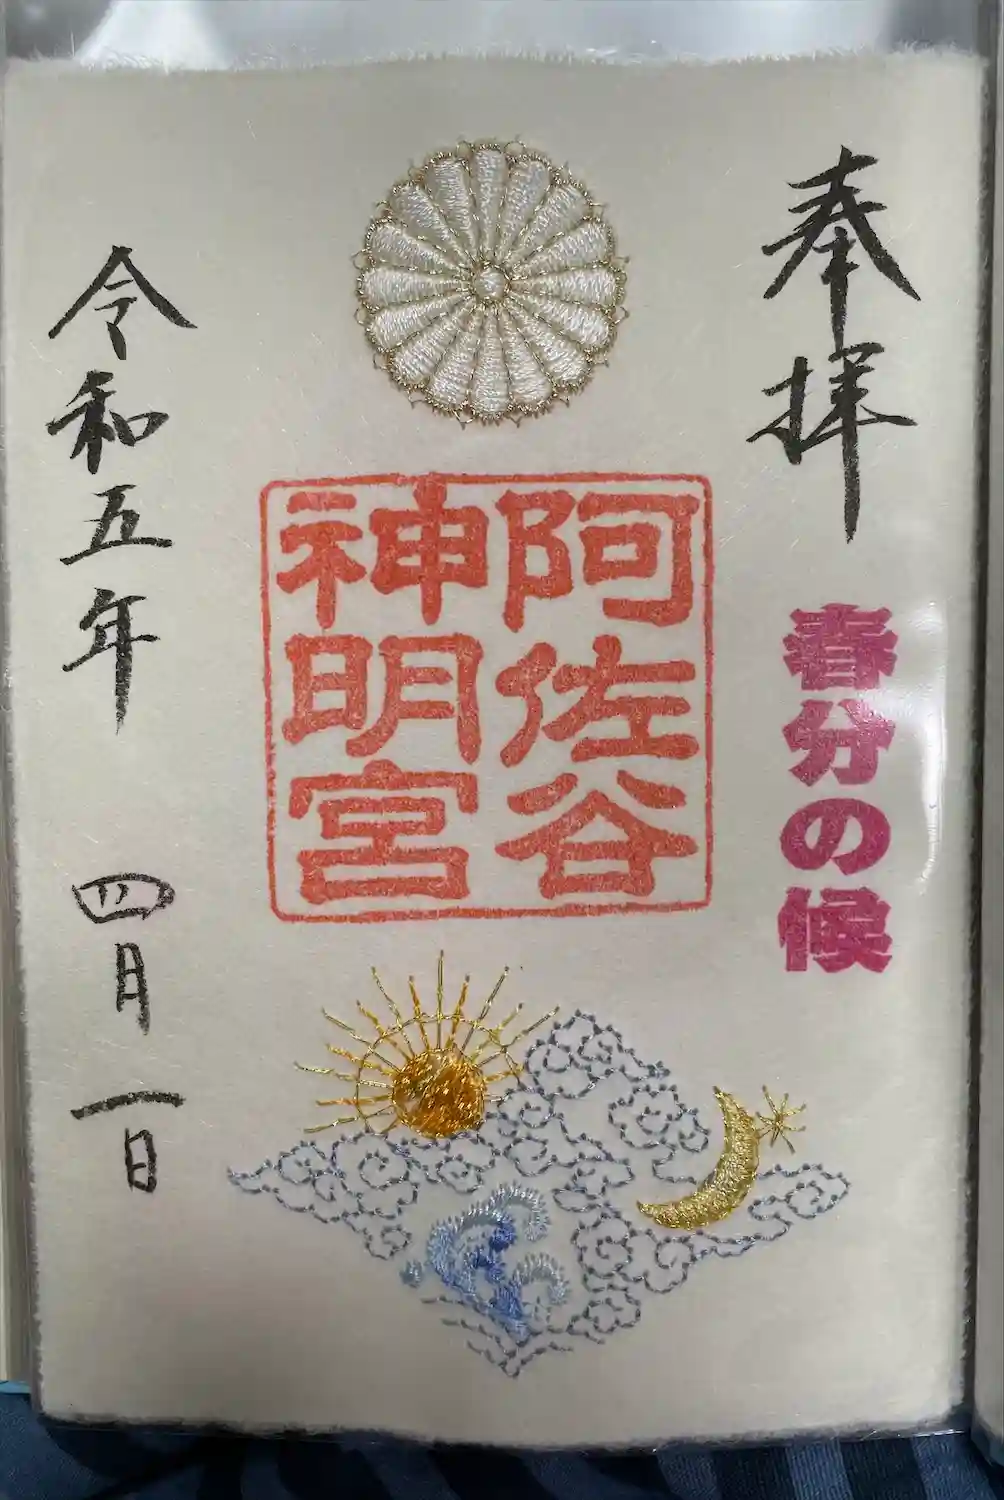 奉拝
春分の候
阿佐谷
神明宮
令和五年 四月一日